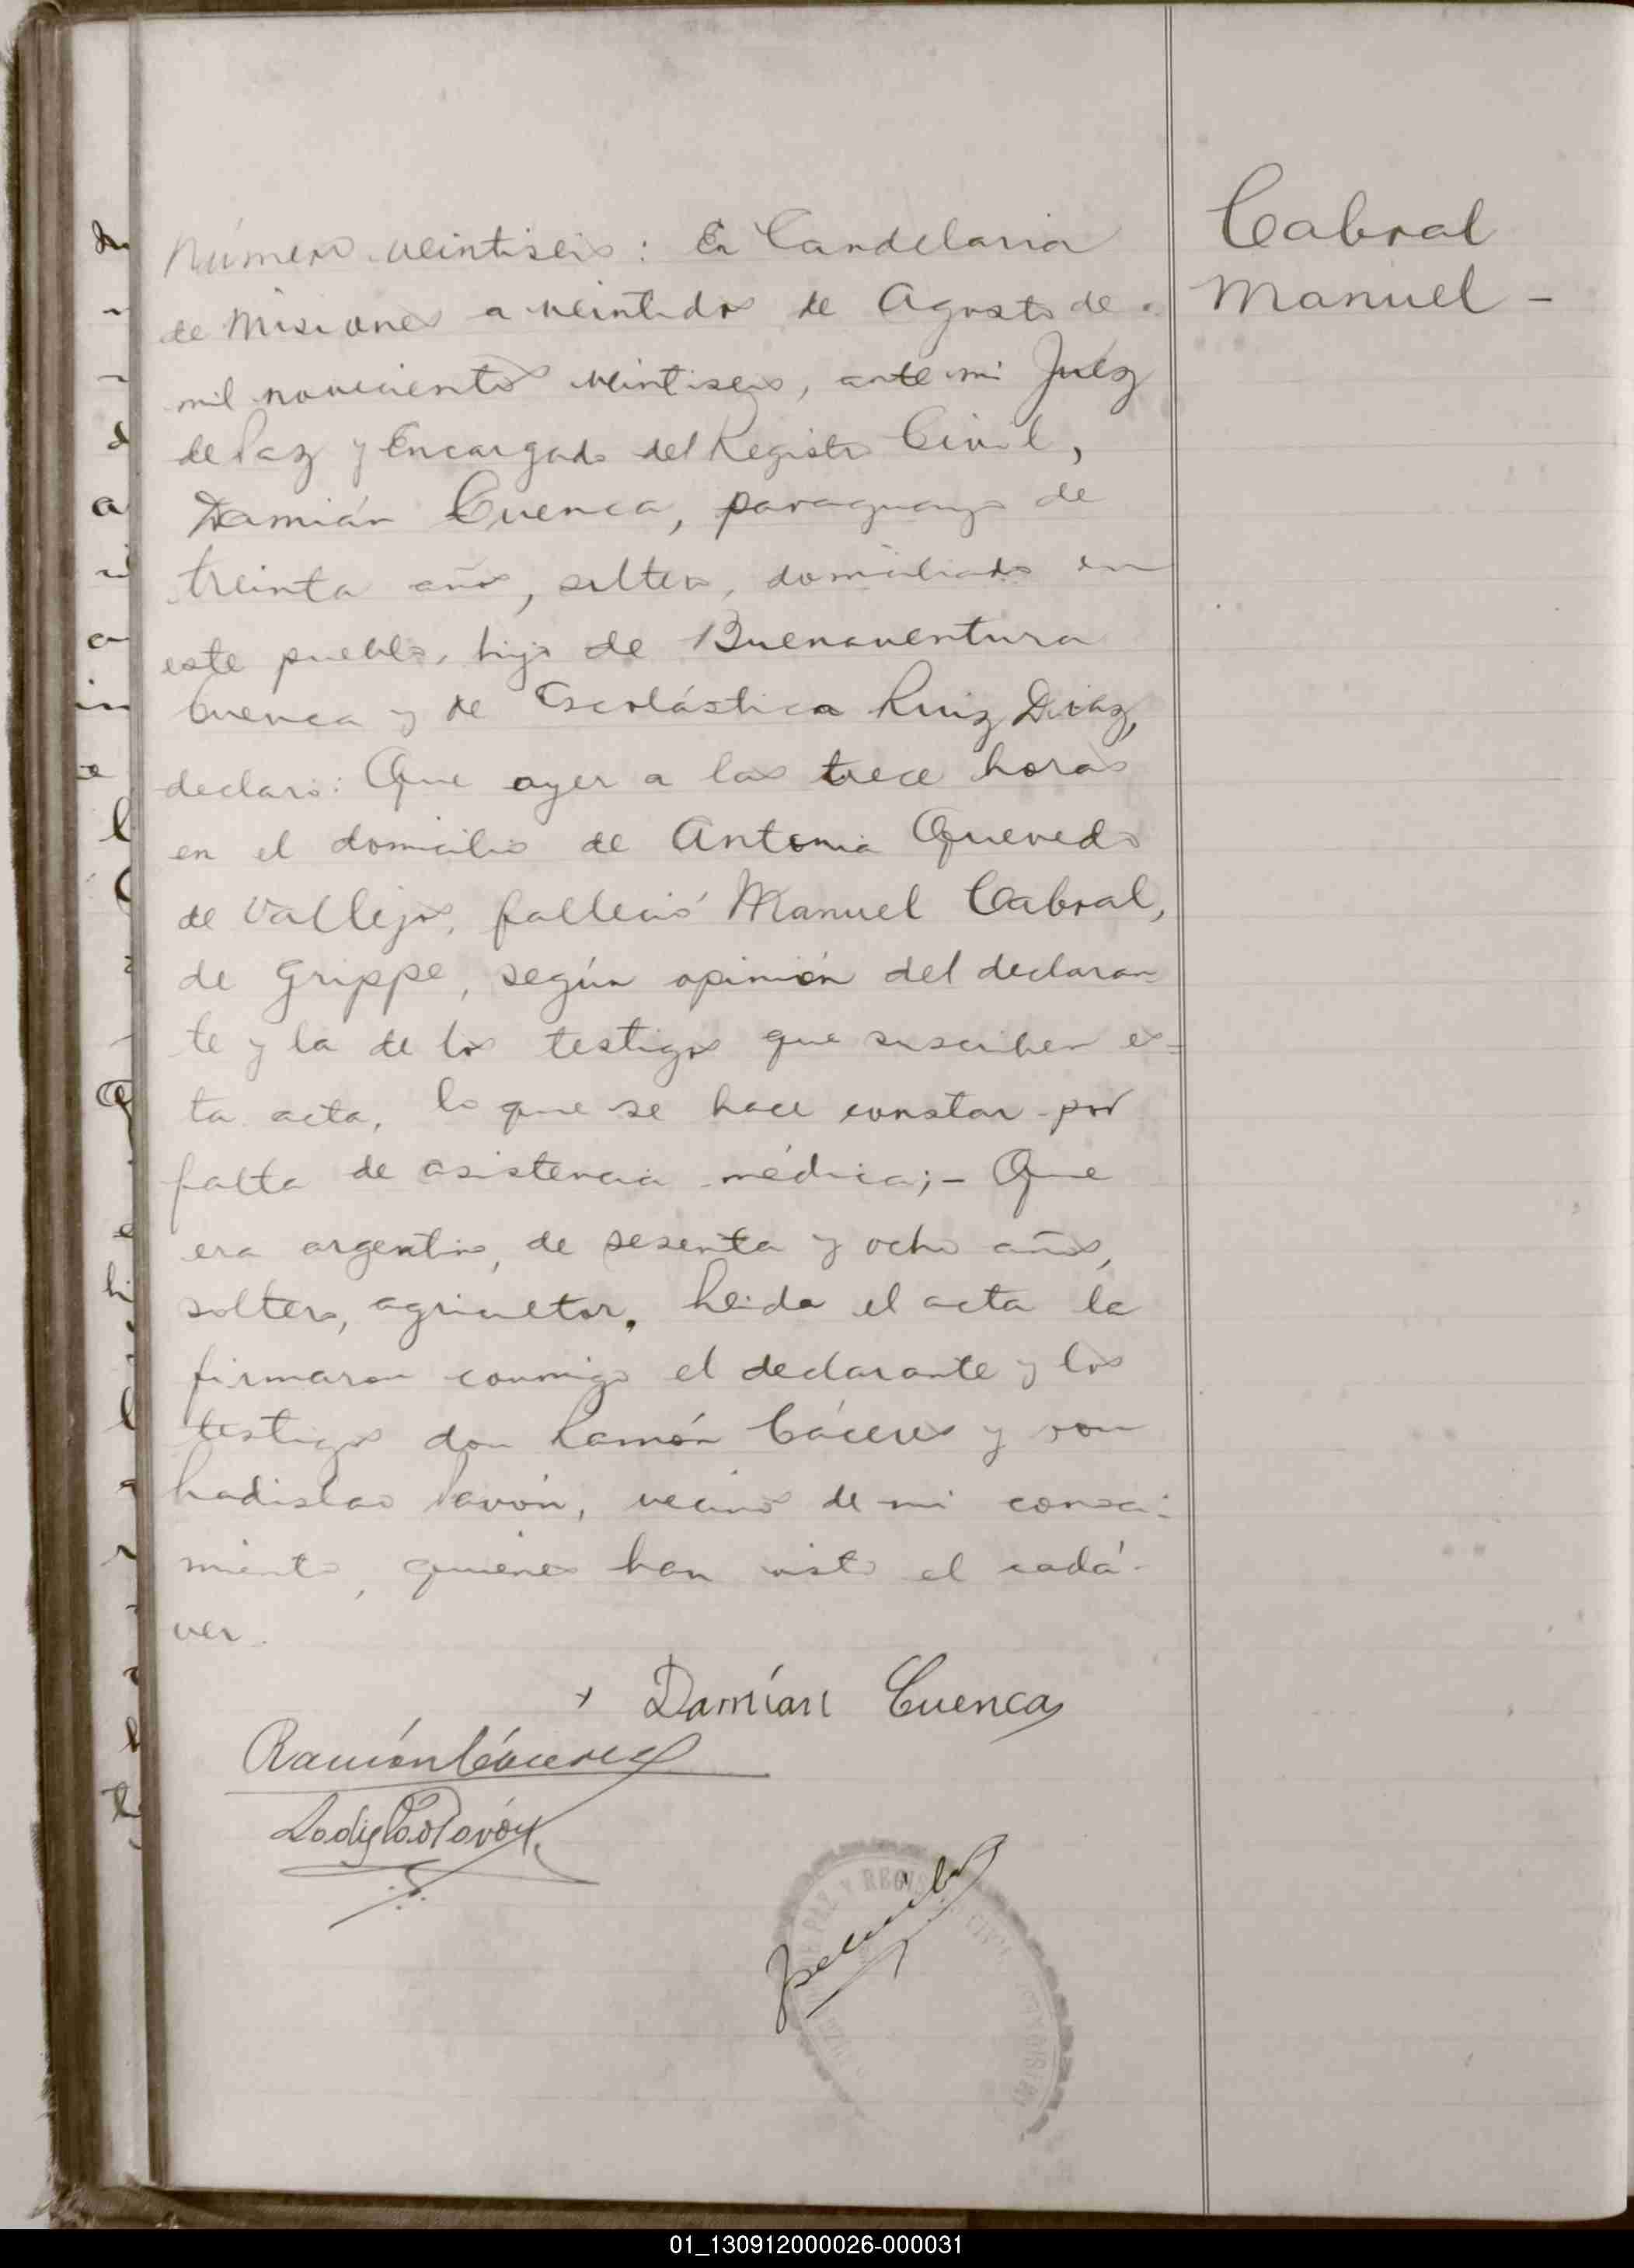 Cabral
Manuel -
Número veintiseis: En Candelaria
de Misiones a veintidos de Agosto de
mil novecientos veintiseis, ante mi Juez
de Paz y Encargado del Registro Civil,
Damián Cuenca, paraguayo de
treinta años, soltero, domiciliado en
este pueblo, hijo de Buenaventura
Cuenca y de Escolástica Ruiz Diaz,
declaró: Que ayer a las trece horas
en el domicilio de Antonia Quevedo
de Vallejos, falleció Manuel Cabral,
de Grippe, según opinión del declaran-
te y la de los testigos que suscriben es=
ta acta, lo que se hace constar por
falta de asistencia médica;- Que
era argentino, de sesenta y ocho años,
soltero, agricultor. Leida el acta la
firmaron conmigo el declarante y los
testigos don Ramón Cáceres y don
Ladislao Pavón, vecinos de mi conoci-
miento, quienes han visto el cadá-
ver.
x Damían Cuenca
Ramón Cáceres
Ladislao Pavón
DE PAZ Y REGISTRO CIVIL
01_130912000026-000031